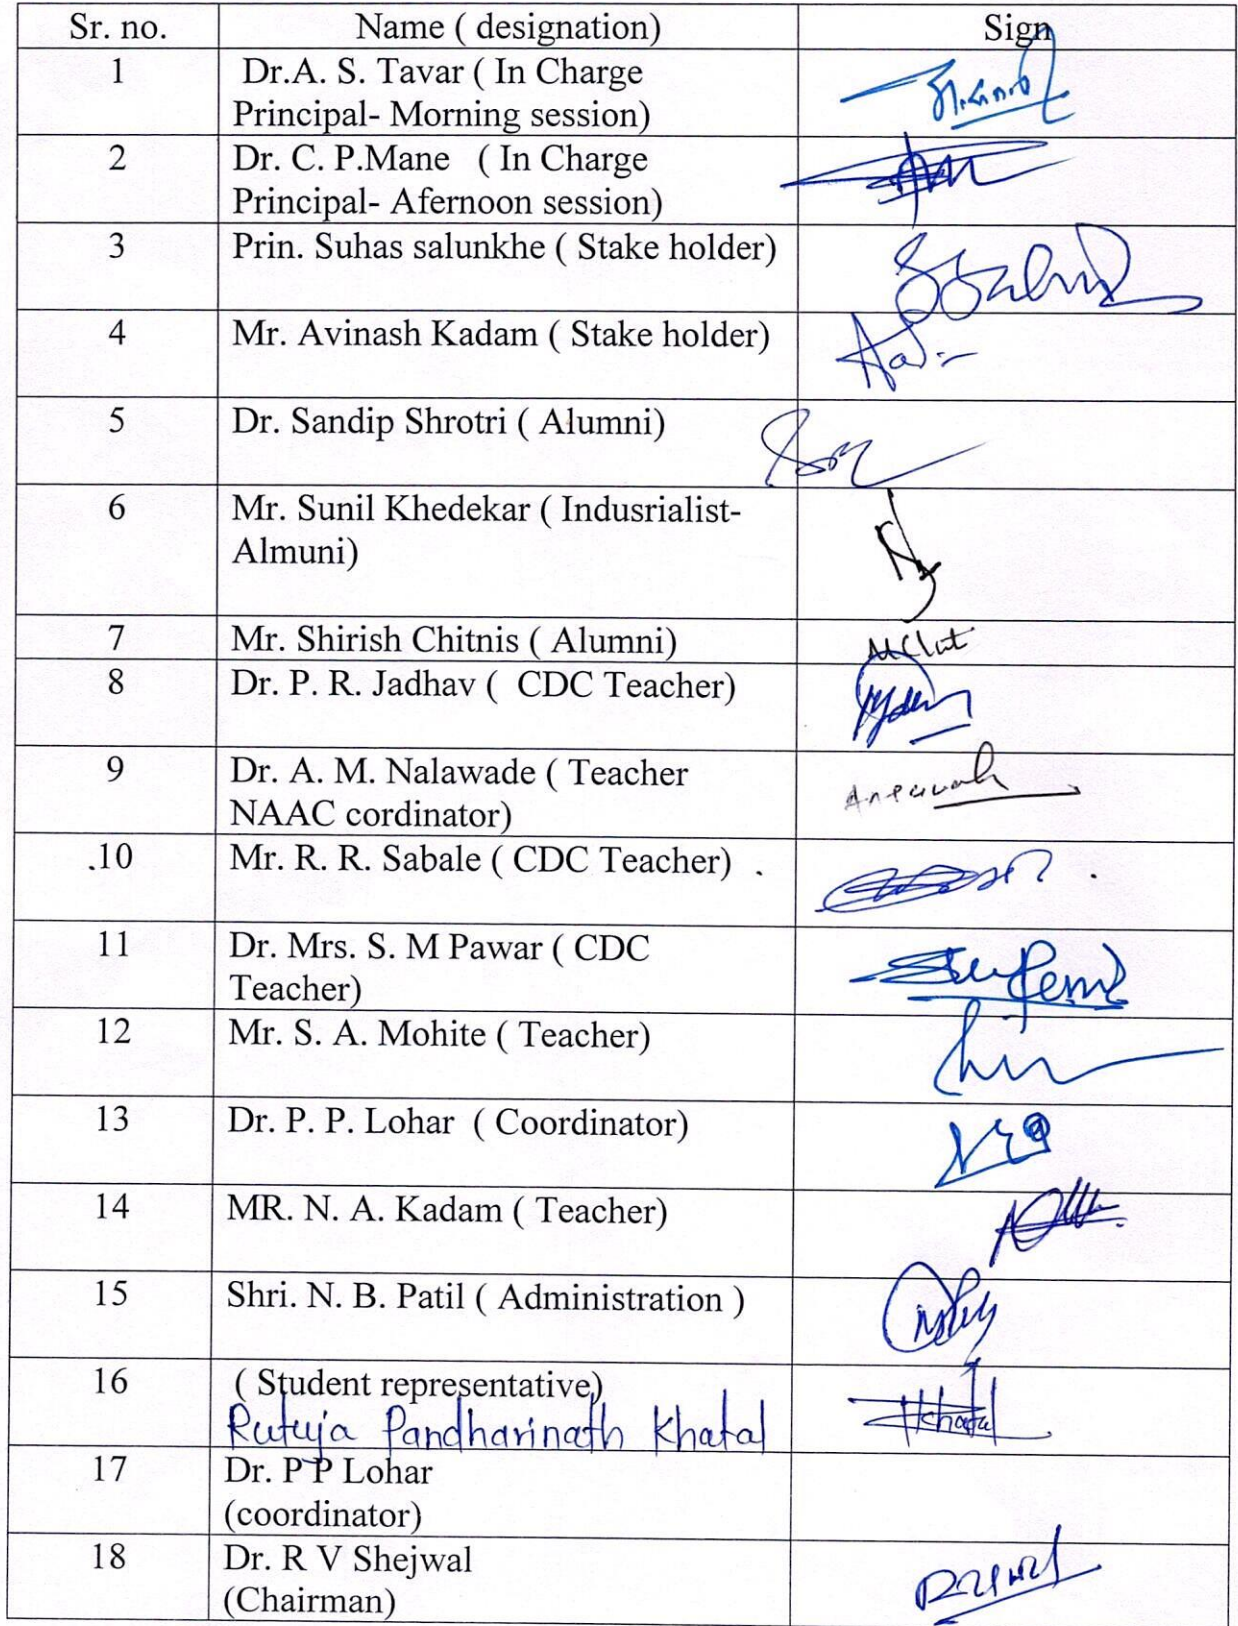 Sr. no. Name ( designation) Sign
1 Dr.A. S. Tavar ( In Charge
Principal- Morning session)
2 Dr. C. P.Mane ( In Charge
Principal- Afernoon session)
3 Prin. Suhas salunkhe ( Stake holder)
4 Mr. Avinash Kadam ( Stake holder)
5 Dr. Sandip Shrotri ( Alumni)
6 Mr. Sunil Khedekar ( Indusrialist-
Almuni)
7 Mr. Shirish Chitnis ( Alumni)
8 Dr. P. R. Jadhav ( CDC Teacher)
9 Dr. A. M. Nalawade ( Teacher
NAAC cordinator)
.10 Mr. R. R. Sabale ( CDC Teacher) .
11 Dr. Mrs. S. M Pawar ( CDC
Teacher)
12 Mr. S. A. Mohite ( Teacher)
13 Dr. P. P. Lohar ( Coordinator)
14 MR. N. A. Kadam ( Teacher)
15 Shri. N. B. Patil ( Administration )
16 ( Student representative)
Rutuja Pandharinath Khatal Khatal
17 Dr. P P Lohar
(coordinator)
18 Dr. R V Shejwal
(Chairman)